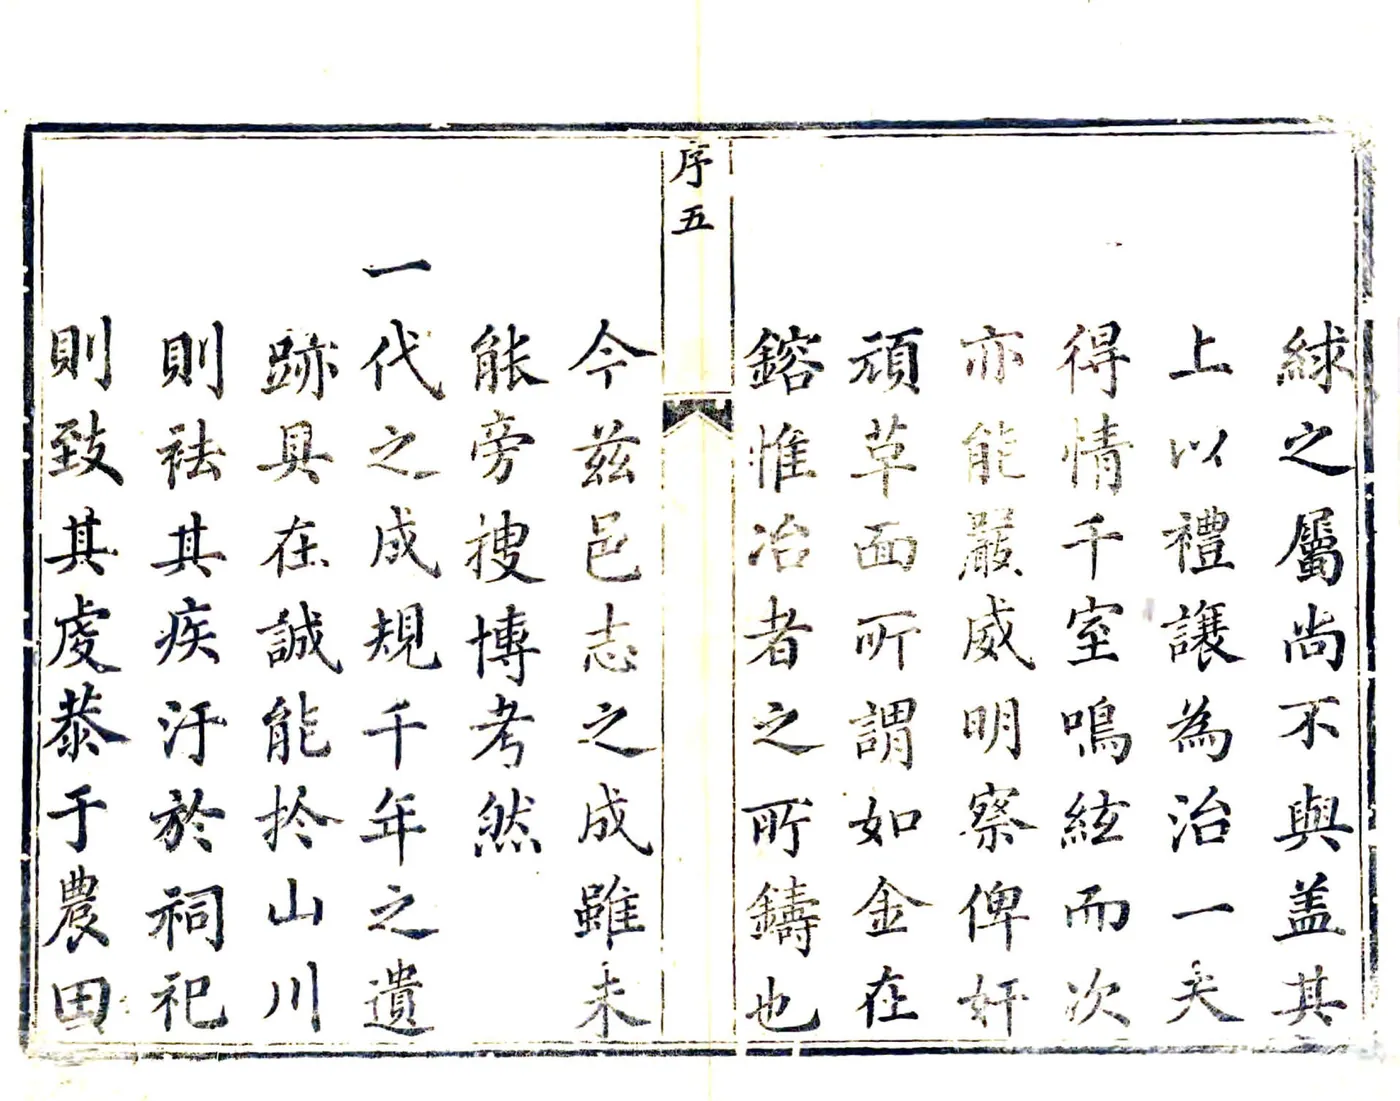 絿之屬尚不與盖其
上以禮讓為治一夫
得情千室鳴絃而次
亦能嚴威明察俾奸
頑革面所謂如金在
鎔惟冶者之所鑄也
序五
今兹邑志之成雖未
能旁搜博考然
一代之成規千年之遺
跡具在誠能於山川
則祛其疾汙於祠祀
則致其虔恭于農田